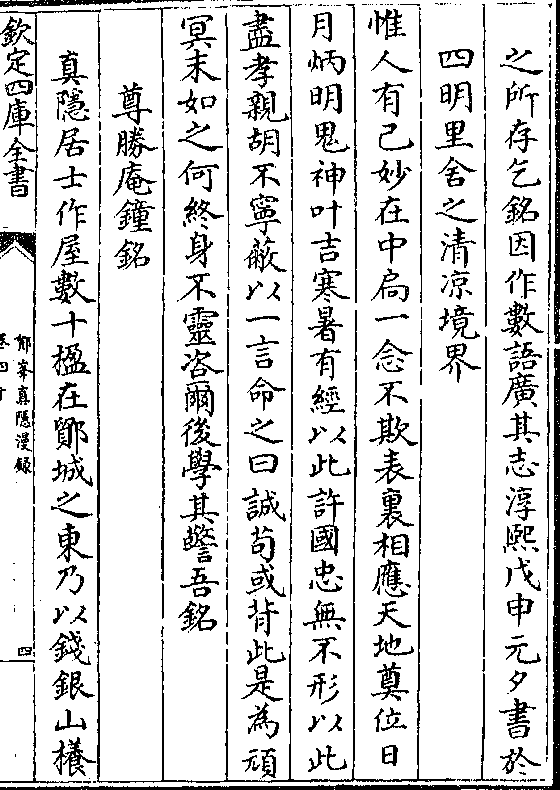 之所存乞銘因作數語廣其志淳熙戊申元夕書於
四明里舍之清涼境界
惟人有己妙在中扃一念不欺表裏相應天地奠位日
月炳明鬼神叶吉寒暑有經以此許國忠無不形以此
盡孝親胡不寧蔽以一言命之曰誠苟或背此是為頑
冥末如之何終身不靈咨爾後學其警吾銘
尊勝庵鐘銘
真隱居士作屋數十楹在鄮城之東乃以錢銀山檥
欽定四庫全書
鄮峯真隱漫録
卷四十
四